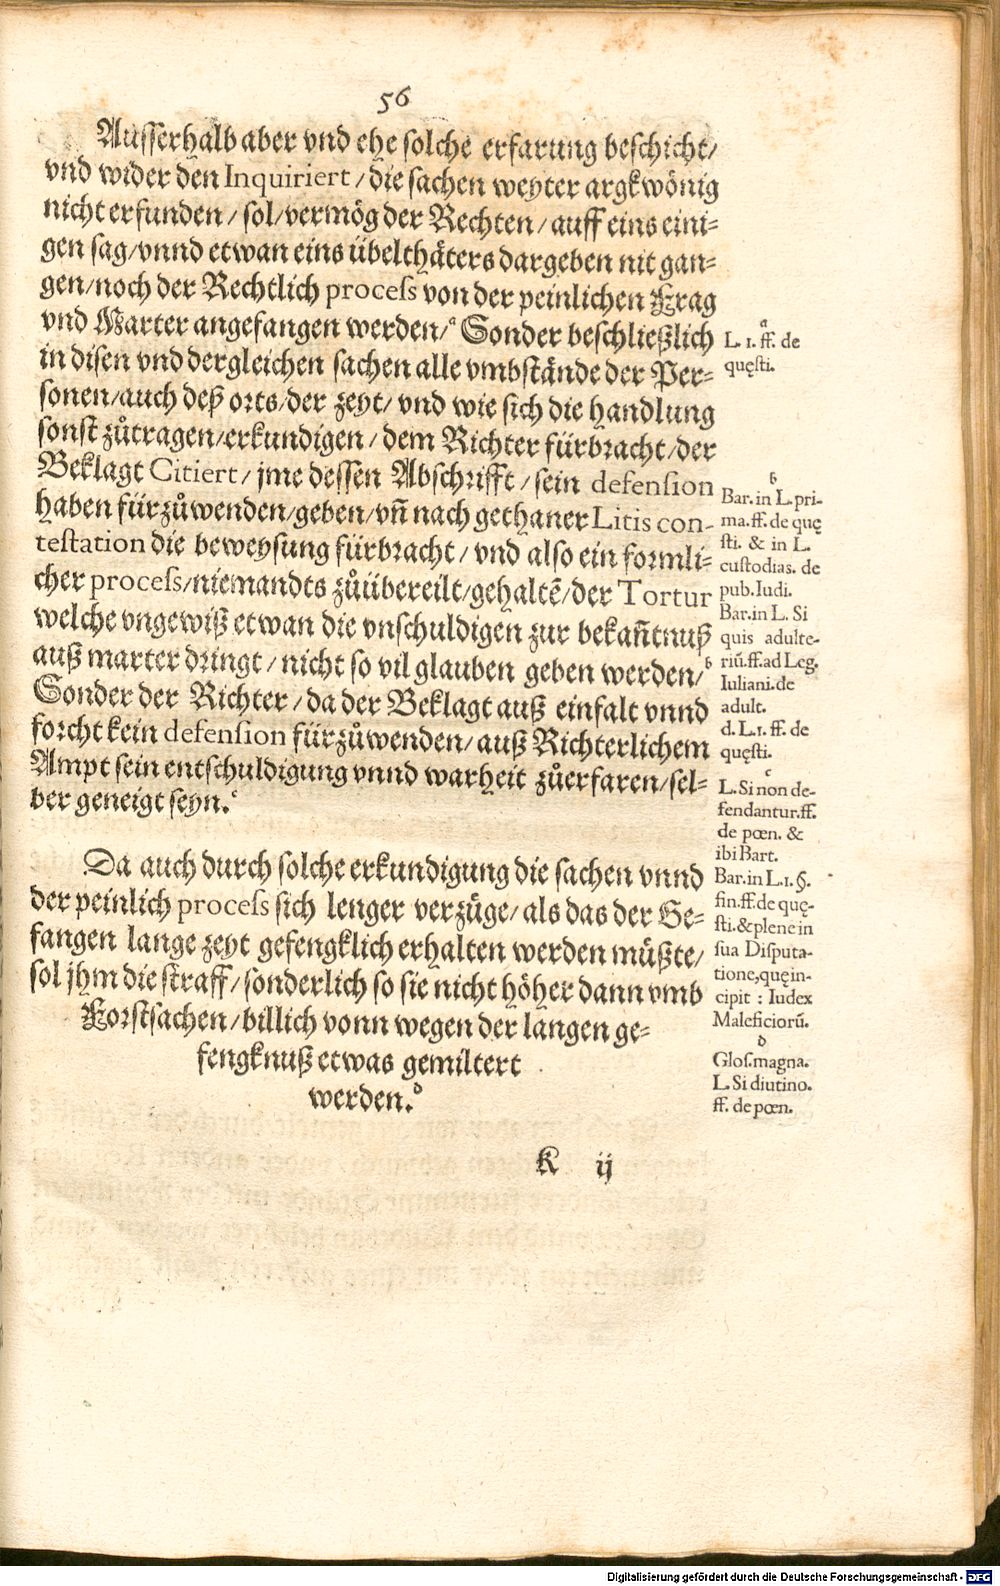 56
Ausserhalb aber vnd ehe solche erfarung beschicht/
vnd wider den Inquiriert / die sachen weyter argkwönig
nicht erfunden / sol / vermög der Rechten / auff eins eini-
gen sag / vnnd etwan eins übelthäters dargeben nit gan-
gen / noch der Rechtlich process von der peinlichen Frag
vnd Marter angefangen werden /ᵃ Sonder beschließlich
in disen vnd dergleichen sachen alle vmbstände der Per-
sonen / auch deß orts / der zeyt / vnd wie sich die handlung
sonst zůtragen / erkundigen / dem Richter fürbracht / der
Beklagt Citiert / jme dessen Abschrifft / sein defension
haben fürzůwenden / geben / vñ nach gethaner Litis con-
testation die beweysung fürbracht / vnd also ein formli-
cher process / niemandts zůübereilt / gehaltẽ / der Tortur
welche vngewiß etwan die vnschuldigen zur bekañtnuß
auß marter dringt / nicht so vil glauben geben werden /ᵇ
Sonder der Richter / da der Beklagt auß einfalt vnnd
forcht kein defension fürzůwenden / auß Richterlichem
Ampt sein entschuldigung vnnd warheit zůerfaren / sel-
ber geneigt seyn.ᶜ
Da auch durch solche erkundigung die sachen vnnd
der peinlich process sich lenger verzüge / als das der Ge-
fangen lange zeyt gefengklich erhalten werden müßte /
sol jhm die straff / sonderlich so sie nicht höher dann vmb
Forstsachen / billich vonn wegen der langen ge-
fengknuß etwas gemiltert
werden.ᵈ
K ij
a
L. 1. ff. de
quęsti.
b
Bar. in L. pri-
ma. ff. de quę
sti. & in L.
custodias. de
pub. Iudi.
Bar. in L. Si
quis adulte-
riũ. ff. ad Leg.
Iuliani. de
adult.
d. L. 1. ff. de
quęsti.
c
L. Si non de-
fendantur. ff.
de pœn. &
ibi Bart.
Bar. in L. 1. §.
fin. ff. de quę-
sti. & plene in
sua Disputa-
tione, quę in-
cipit : Iudex
Maleficiorũ.
d
Glos. magna.
L. Si diutino.
ff. de pœn.
Digitalisierung gefördert durch die Deutsche Forschungsgemeinschaft - DFG